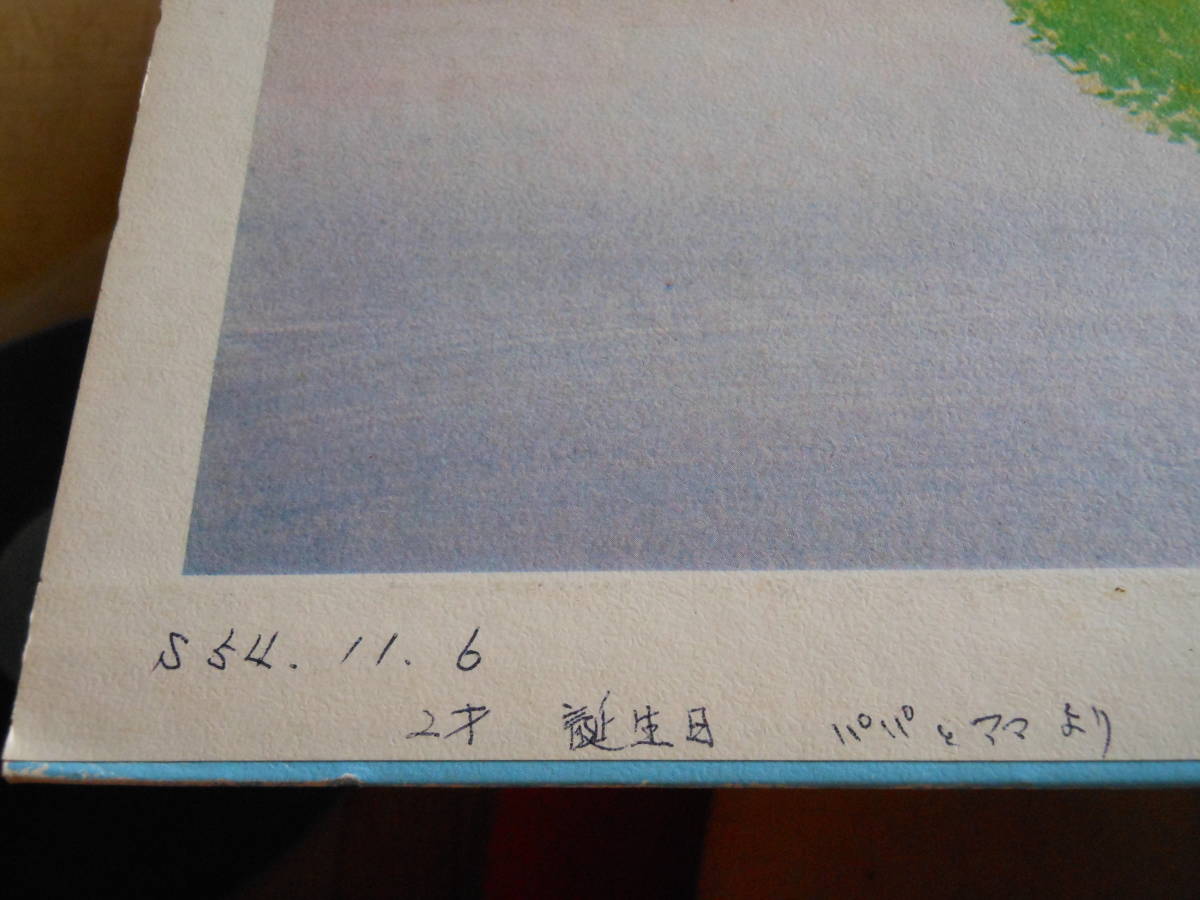 S 54. 11. 6
2才 誕生日 パパとママより